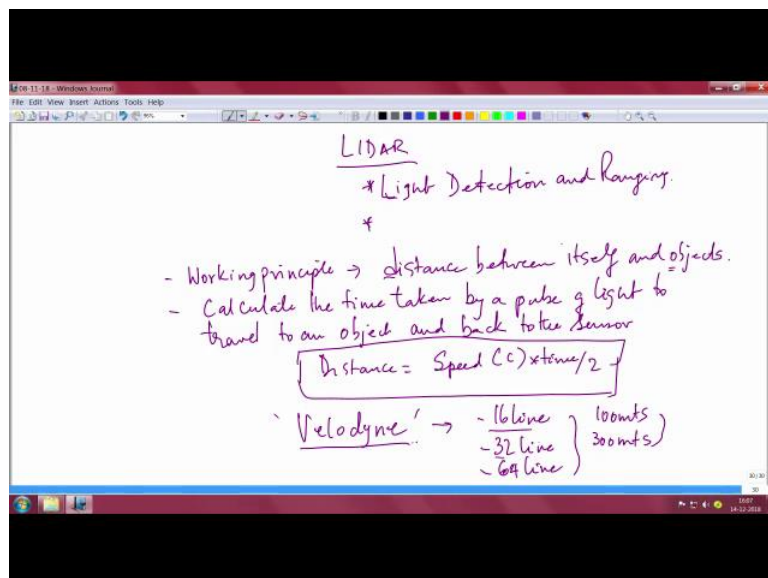 08-11-18 - Windows Journal
File Edit View Insert Actions Tools Help
LIDAR
* Light Detection and Ranging.
*
- Working principle → distance between itself and objects.
- Calculate the time taken by a pulse of light to
travel to an object and back to the sensor
Distance = Speed (c) * time/2
'Velodyne' → - 16 line } 100mts
- 32 line 300mts )
- 64 line
30/30
30
16:07
14-12-2018